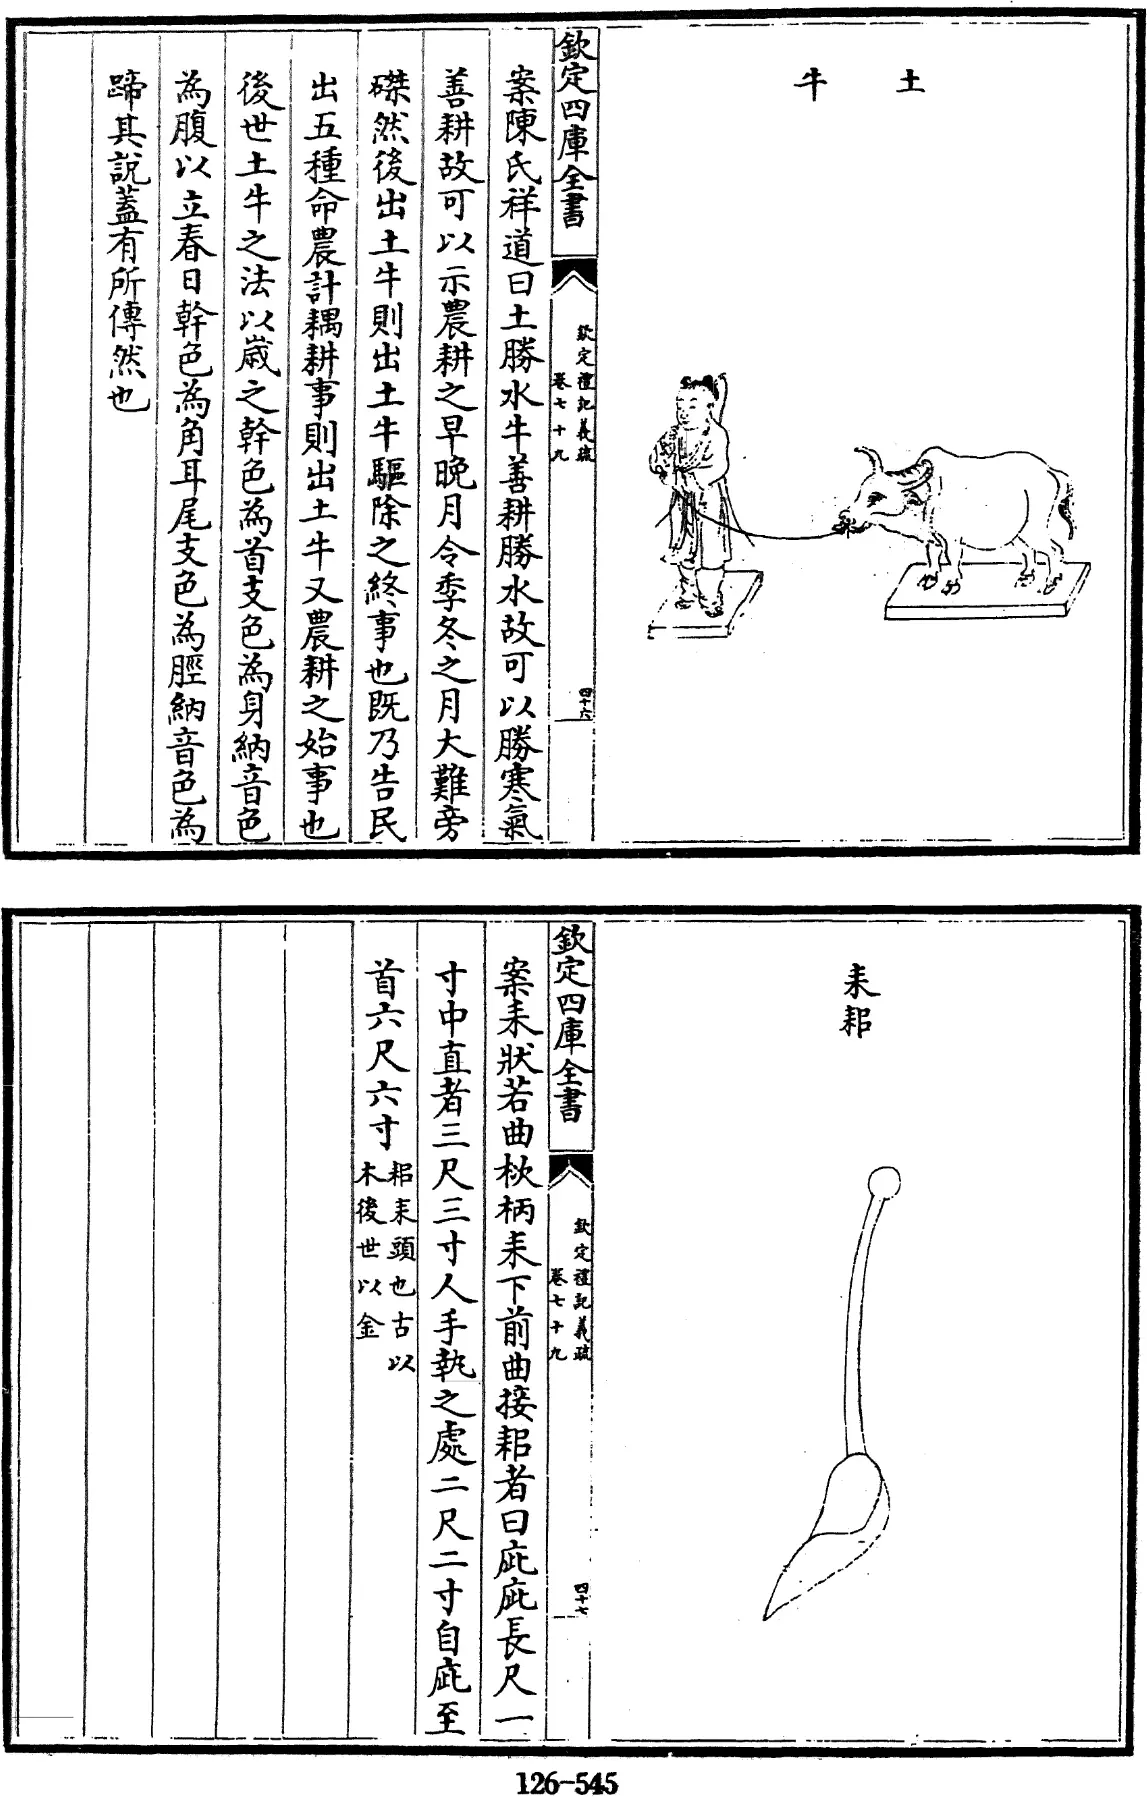 土牛
欽定四庫全書
欽定禮記義疏
卷七十九
四十六
案陳氏祥道曰土勝水牛善耕勝水故可以勝寒氣
善耕故可以示農耕之早晚月令季冬之月大難旁
磔然後出土牛則出土牛驅除之終事也既乃告民
出五種命農計耦耕事則出土牛又農耕之始事也
後世土牛之法以歲之幹色為首支色為身納音色
為腹以立春日幹色為角耳尾支色為脛納音色為
蹄其說蓋有所傳然也
耒耜
欽定四庫全書
欽定禮記義疏
卷七十九
四十七
案耒狀若曲杴柄耒下前曲接耜者曰庇庇長尺一
寸中直者三尺三寸人手執之處二尺二寸自庇至
首六尺六寸
耜耒頭也古以
木後世以金
126-545